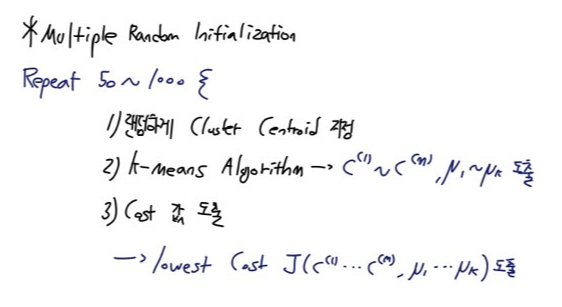 *Multiple Random Initialization
Repeat 50 ~ 1000 {
1) 랜덤하게 Cluster Centroid 지정
2) k-means Algorithm → C⁽¹⁾ ~ C⁽ᵐ⁾, μ₁ ~ μₖ 도출
3) Cost 값 도출
→ lowest Cost J(C⁽¹⁾ ... C⁽ᵐ⁾, μ₁ ... μₖ) 도출